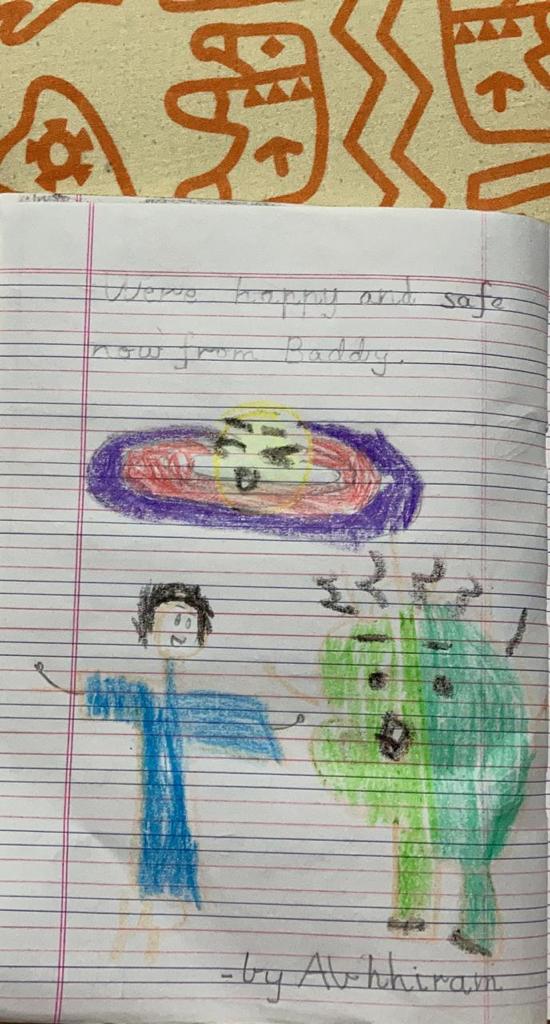 We're happy and safe
now from Baddy.
-by Abhhiram